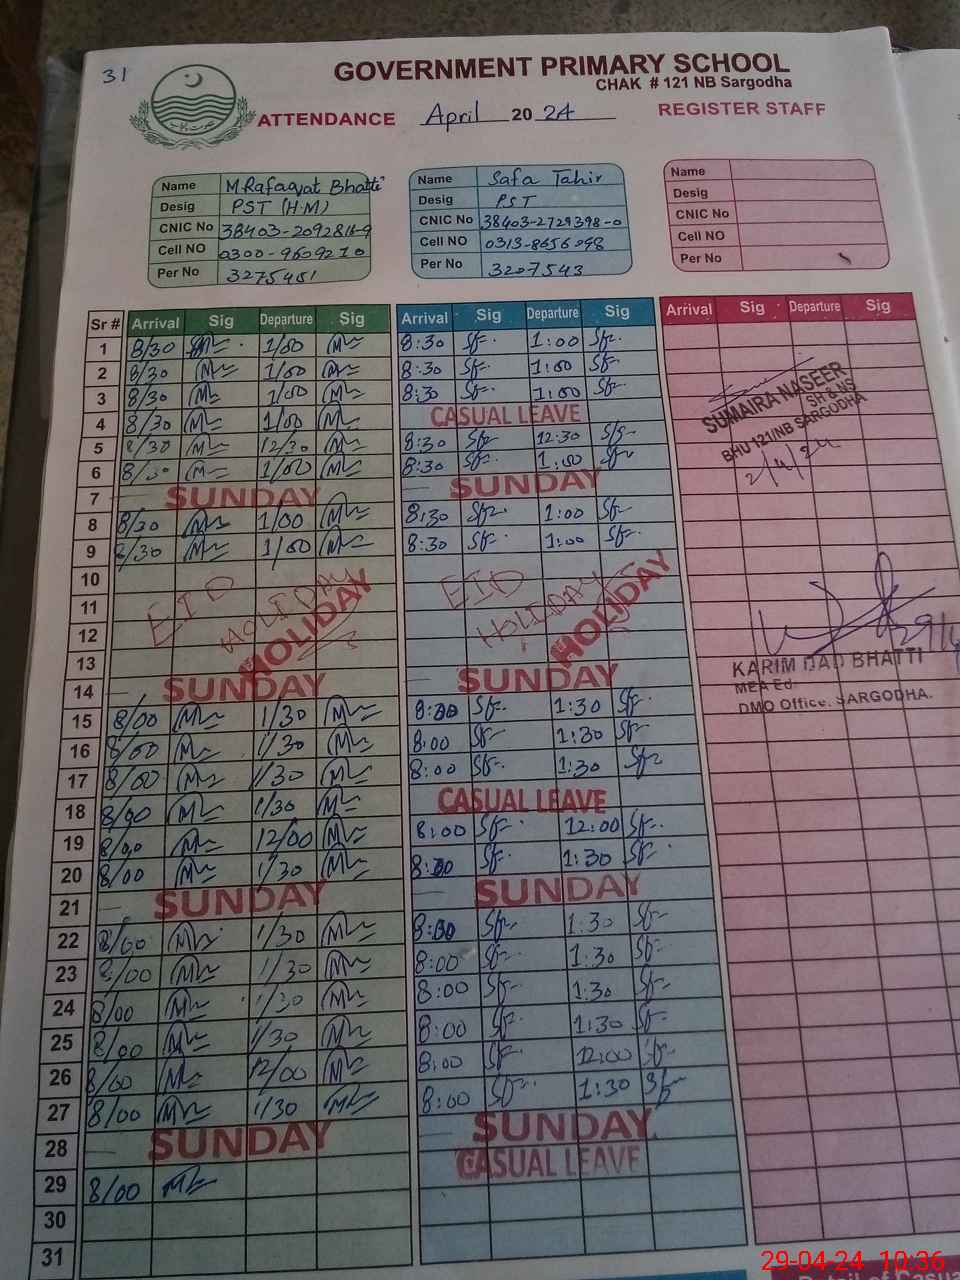 31
GOVERNMENT PRIMARY SCHOOL
CHAK # 121 NB Sargodha
ATTENDANCE April 20 24 REGISTER STAFF
Name M.Rafaqyat Bhatti Name Safa Tahir Name
Desig PST (H.M) Desig PST Desig
CNIC No CNIC No 38403-2729398-0 CNIC No
Cell NO 0300-9609210 Cell NO 0313-8656098 Cell NO
Per No 3275451 Per No 3207543 Per No
Sr # Arrival Sig Departure Sig Arrival Sig Departure Sig Arrival Sig Departure Sig
1 8/30 1/00 8:30 Sf. 1:00 Sf.
2 8/30 1/00 8:30 Sf. 1:00 Sf.
3 8/30 1/00 8:30 Sf. 1:00 Sf.
4 8/30 1/00 CASUAL LEAVE
5 8/30 12/30 8:30 Sf. 12:30 Sf.
6 8/30 1/00 8:30 Sf. 1:00 Sf.
7 SUNDAY SUNDAY
8 8/30 1/00 8:30 Sf. 1:00 Sf.
9 8/30 1/00 8:30 Sf. 1:00 Sf.
10 EID EID
11 HOLIDAY HOLIDAY HOLIDAY HOLIDAY
12
13
14 SUNDAY SUNDAY
15 8/00 1/30 8:00 Sf. 1:30 Sf.
16 8/00 1/30 8:00 Sf. 1:30 Sf.
17 8/00 1/30 8:00 Sf. 1:30 Sf.
18 8/00 1/30 CASUAL LEAVE
19 8/00 12/00 8:00 Sf. 12:00 Sf.
20 8/00 1/30 8:00 Sf. 1:30 Sf.
21 SUNDAY SUNDAY
22 8/00 1/30 8:00 Sf. 1:30 Sf.
23 8/00 1/30 8:00 Sf. 1:30 Sf.
24 8/00 1/30 8:00 Sf. 1:30 Sf.
25 8/00 1/30 8:00 Sf. 1:30 Sf.
26 8/00 12/00 8:00 Sf. 12:00 Sf.
27 8/00 1/30 8:00 Sf. 1:30 Sf.
28 SUNDAY SUNDAY
29 8/00 CASUAL LEAVE
30
31
SUMAIRA NASEER
SH & NS
BHU 121/NB SARGODHA
2/4/24
KARIM DAD BHATTI
MEA Ed
DMO Office. SARGODHA.
29-04-24 10:36